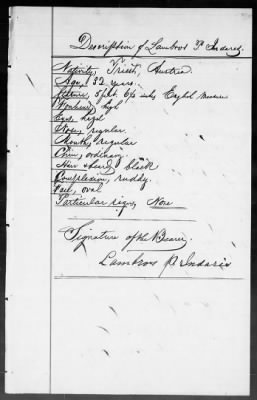 Description of Lambros P. Indaris
Nativity, Triest, Austria.
Age, 32 years.
Stature, 5 feet 6½ inches, English Measure
Forehead, high
Eyes, hazel
Nose, regular
Mouth, regular
Chin, ordinary
Hair & beard, black
Complexion, ruddy
Face, oval
Particular signs, None
Signature of the Bearer.
Lambros P. Indaris